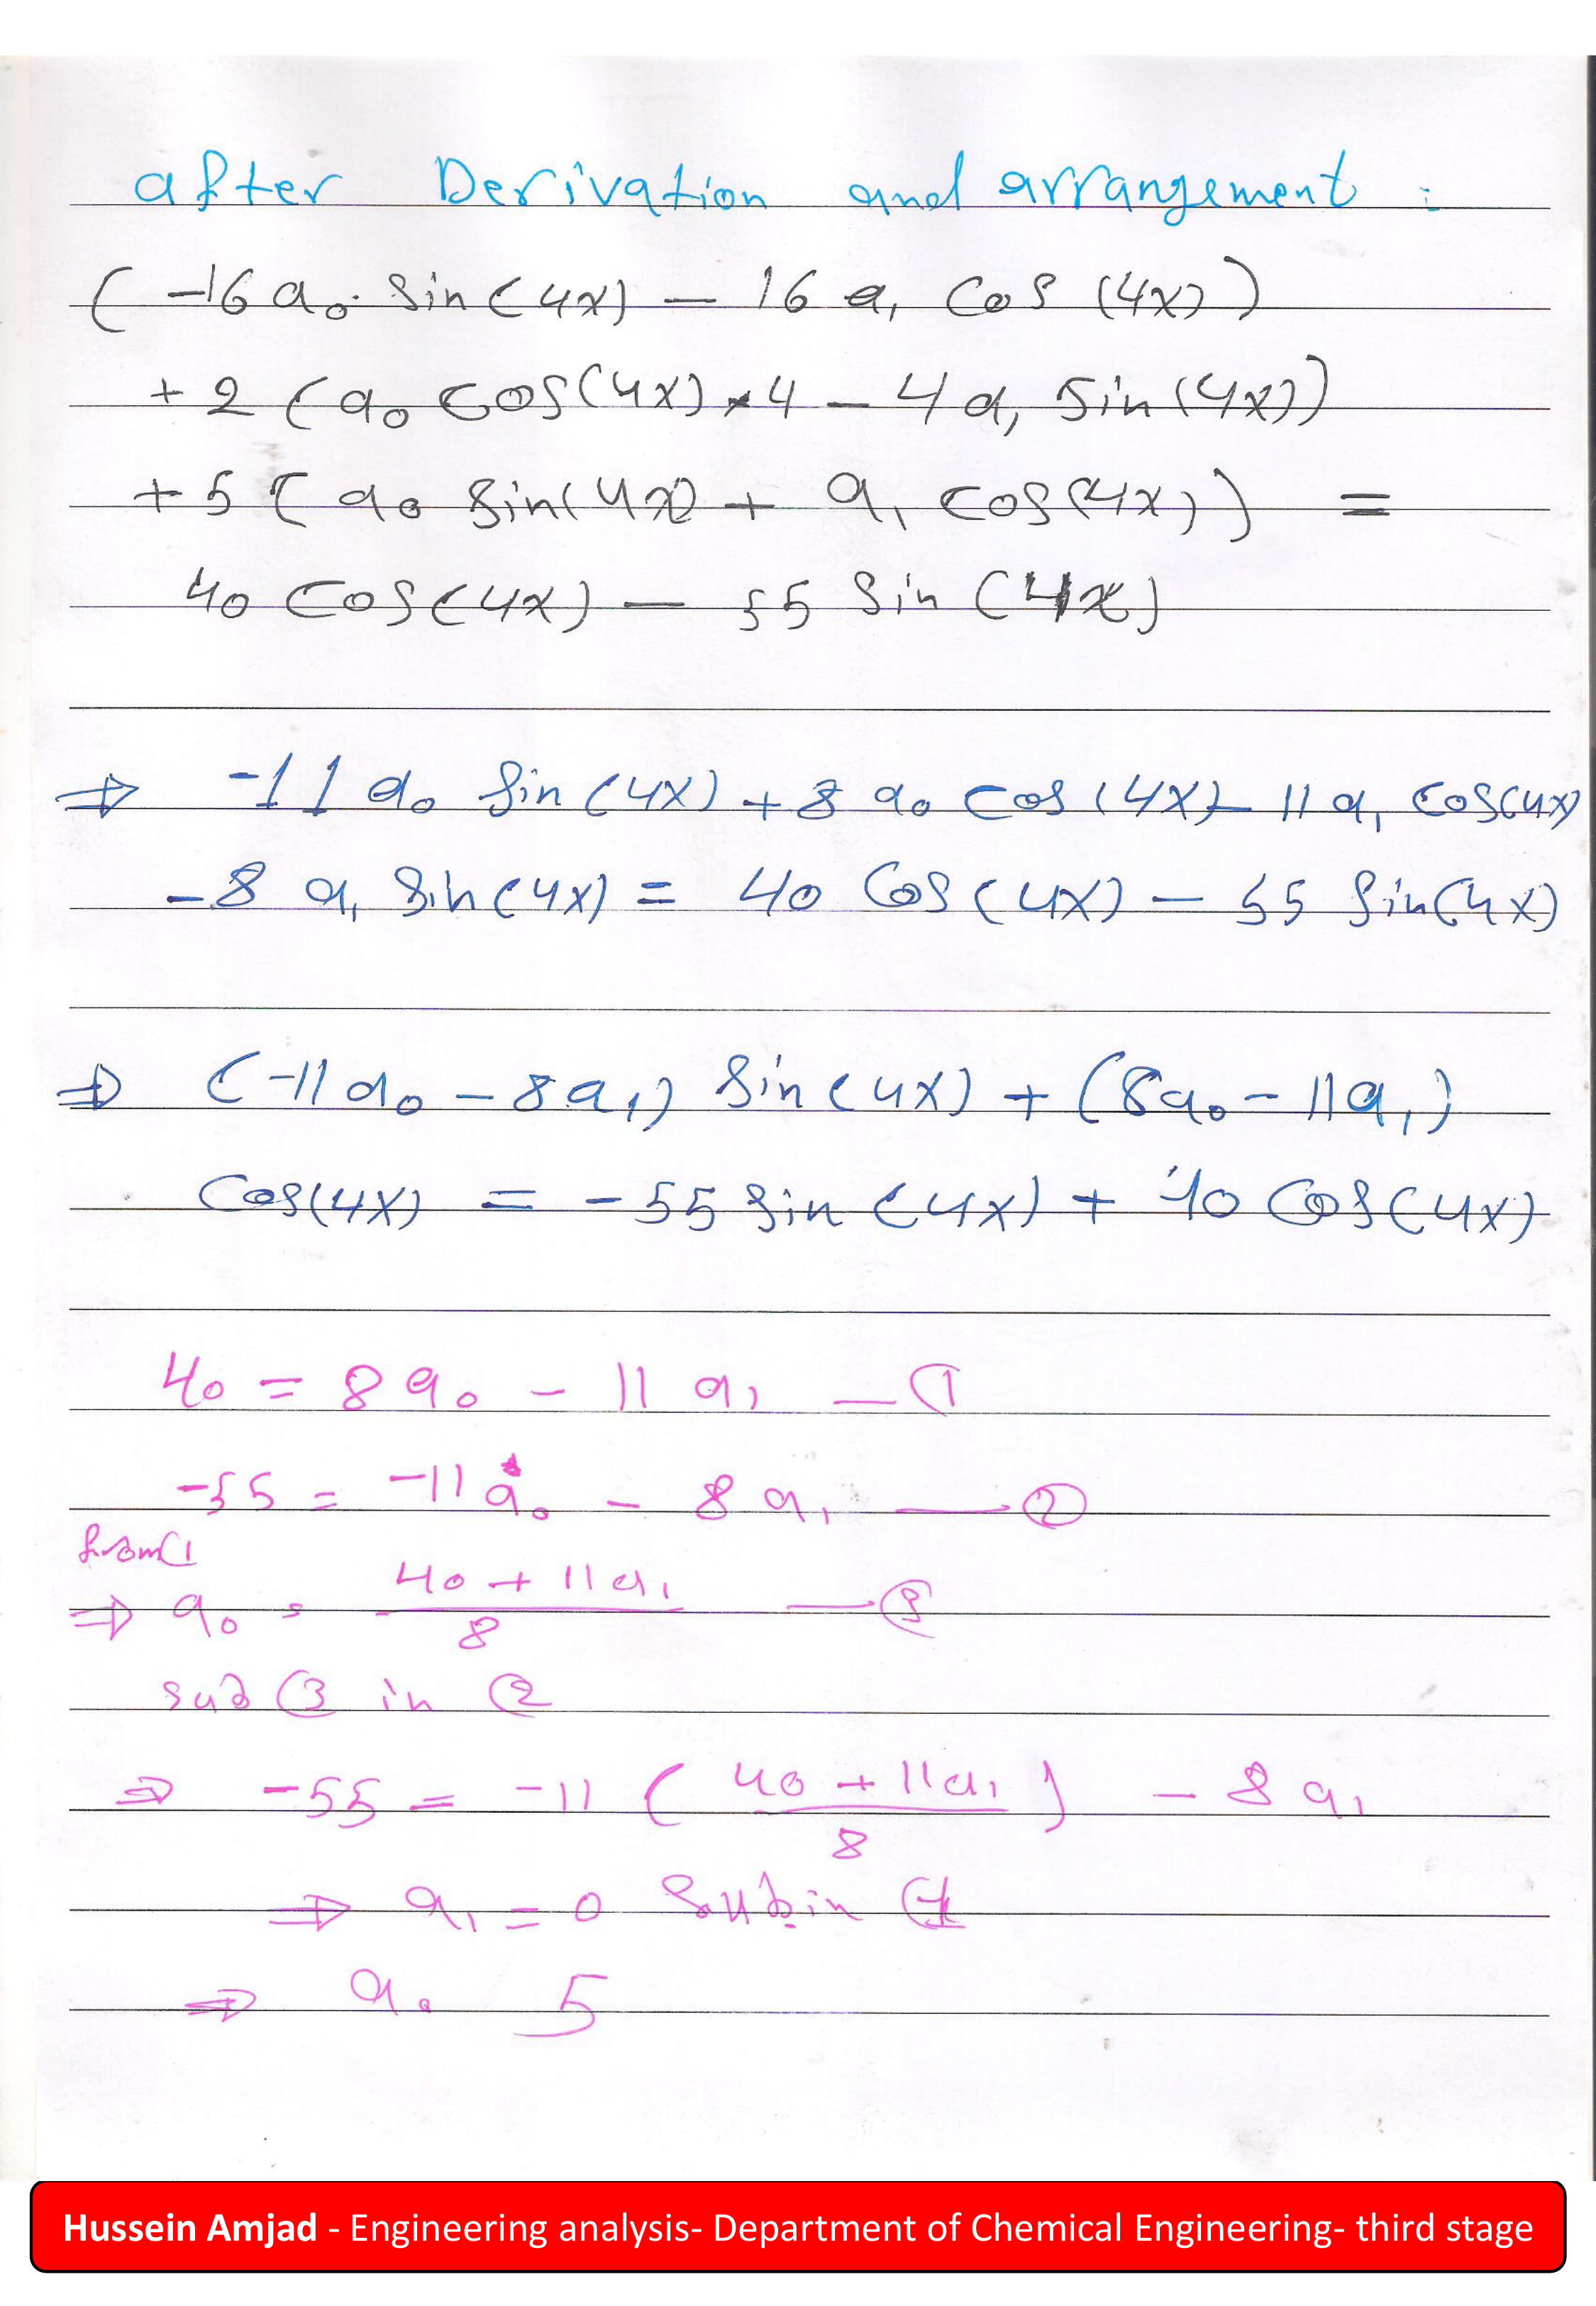 after Derivation and arrangement :
( -16 a₀ · sin(4x) — 16 a₁ cos (4x))
+ 2 ( a₀ cos(4x) * 4 — 4 a₁ sin(4x))
+ 5 ( a₀ sin(4x) + a₁ cos(4x)) =
40 cos(4x) — 55 sin (4x)
⇒ -11 a₀ sin(4x) + 8 a₀ cos(4x) - 11 a₁ cos(4x)
- 8 a₁ sin(4x) = 40 cos(4x) — 55 sin(4x)
⇒ (-11 a₀ - 8 a₁) sin(4x) + (8a₀ - 11a₁)
cos(4x) = -55 sin(4x) + 40 cos(4x)
40 = 8 a₀ - 11 a₁ — ①
-55 = -11 a₀ - 8 a₁ — ②
from ①
⇒ a₀ = (40 + 11a₁)/8 — ③
sub ③ in ②
⇒ -55 = -11 ( (40 + 11a₁)/8 ) - 8 a₁
⇒ a₁ = 0 sub in ①
⇒ a₀ 5
Hussein Amjad - Engineering analysis- Department of Chemical Engineering- third stage